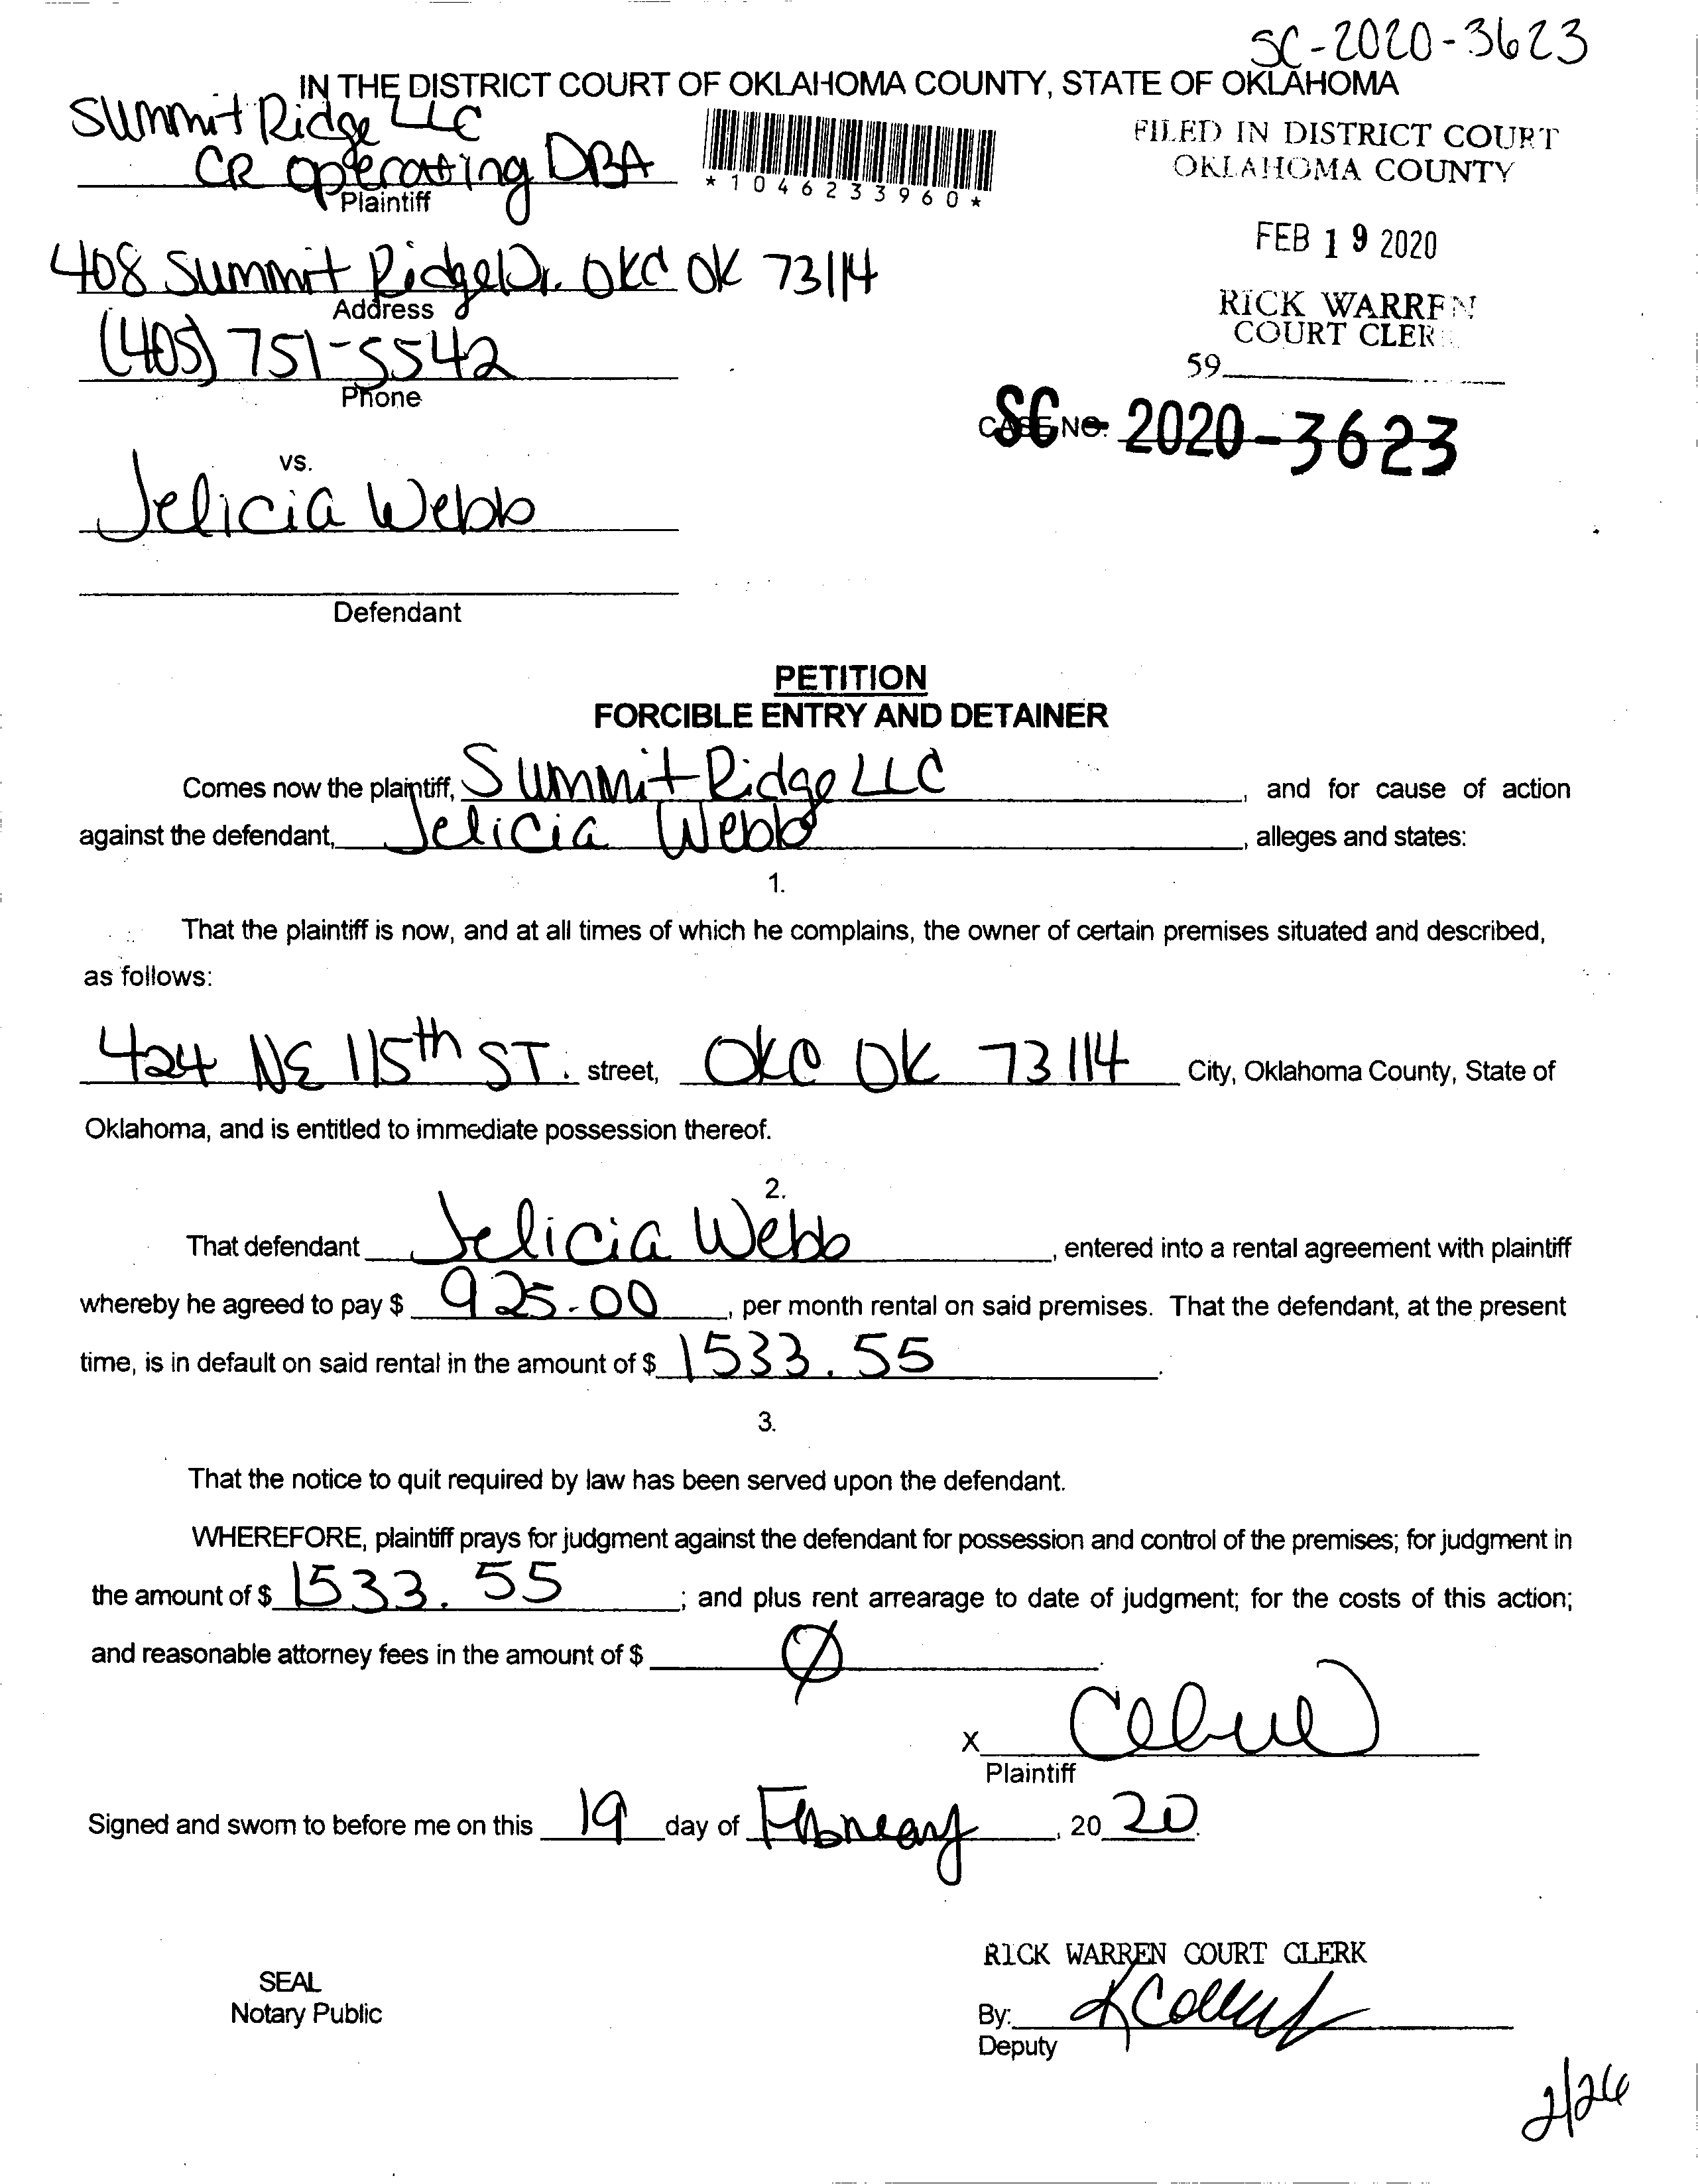 SC-2020-3623
IN THE DISTRICT COURT OF OKLAHOMA COUNTY, STATE OF OKLAHOMA
Summit Ridge LLC
CR operating DBA
Plaintiff
*1046233960*
FILED IN DISTRICT COURT
OKLAHOMA COUNTY
FEB 19 2020
RICK WARREN
COURT CLER
59
408 Summit Ridge Dr. OKC OK 73114
Address
(405) 751-5542
Phone
CASE NO.
SC 2020-3623
vs.
Jelicia Webb
Defendant
PETITION
FORCIBLE ENTRY AND DETAINER
Comes now the plaintiff, Summit Ridge LLC, and for cause of action
against the defendant, Jelicia Webb, alleges and states:
1.
That the plaintiff is now, and at all times of which he complains, the owner of certain premises situated and described,
as follows:
424 NE 115th ST. street, OKC OK 73114 City, Oklahoma County, State of
Oklahoma, and is entitled to immediate possession thereof.
2.
That defendant Jelicia Webb, entered into a rental agreement with plaintiff
whereby he agreed to pay $ 925.00, per month rental on said premises. That the defendant, at the present
time, is in default on said rental in the amount of $ 1533.55.
3.
That the notice to quit required by law has been served upon the defendant.
WHEREFORE, plaintiff prays for judgment against the defendant for possession and control of the premises; for judgment in
the amount of $ 1533.55; and plus rent arrearage to date of judgment; for the costs of this action;
and reasonable attorney fees in the amount of $ Ø.
X
Plaintiff
Signed and sworn to before me on this 19 day of February, 2020.
RICK WARREN COURT CLERK
SEAL
Notary Public
By:
Deputy
2/26